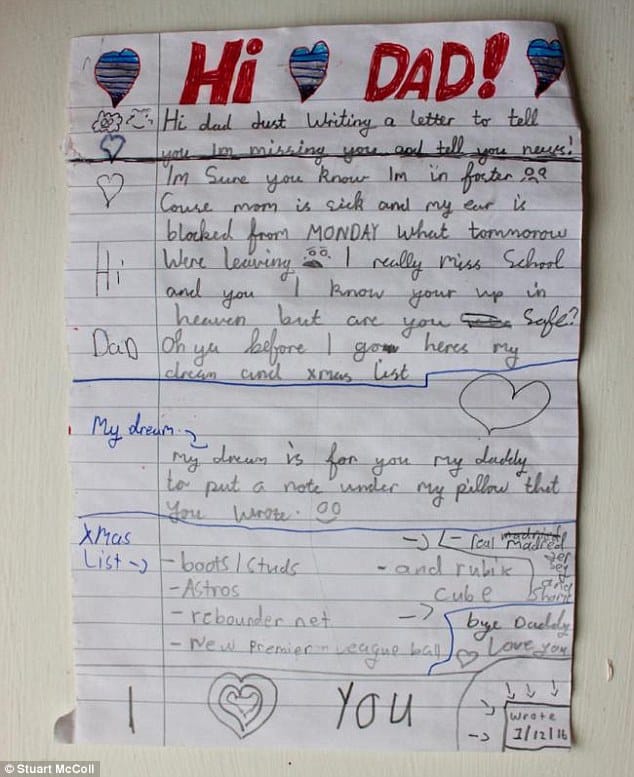 Hi DAD!
Hi dad Just Writing a letter to tell
you Im missing you and tell you news!
Im Sure you know Im in foster
Couse mom is sick and my ear is
blocked from MONDAY What tomnorow
Hi
Were leaving I really miss School
and you I know your up in
heaven but are you Safe?
Dad
Oh ya before I go heres my
dream and xmas list
My dream
My dream is for you my daddy
to put a note under my pillow that
you wrote.
Xmas
List
- boots/studs
- Astros
- rebounder net
- New Premier-League ball
- real
jer
sey
and
- and rubix
cube
bye Daddy
Love you
I YOU
Wrote
1/12/16
© Stuart McColl